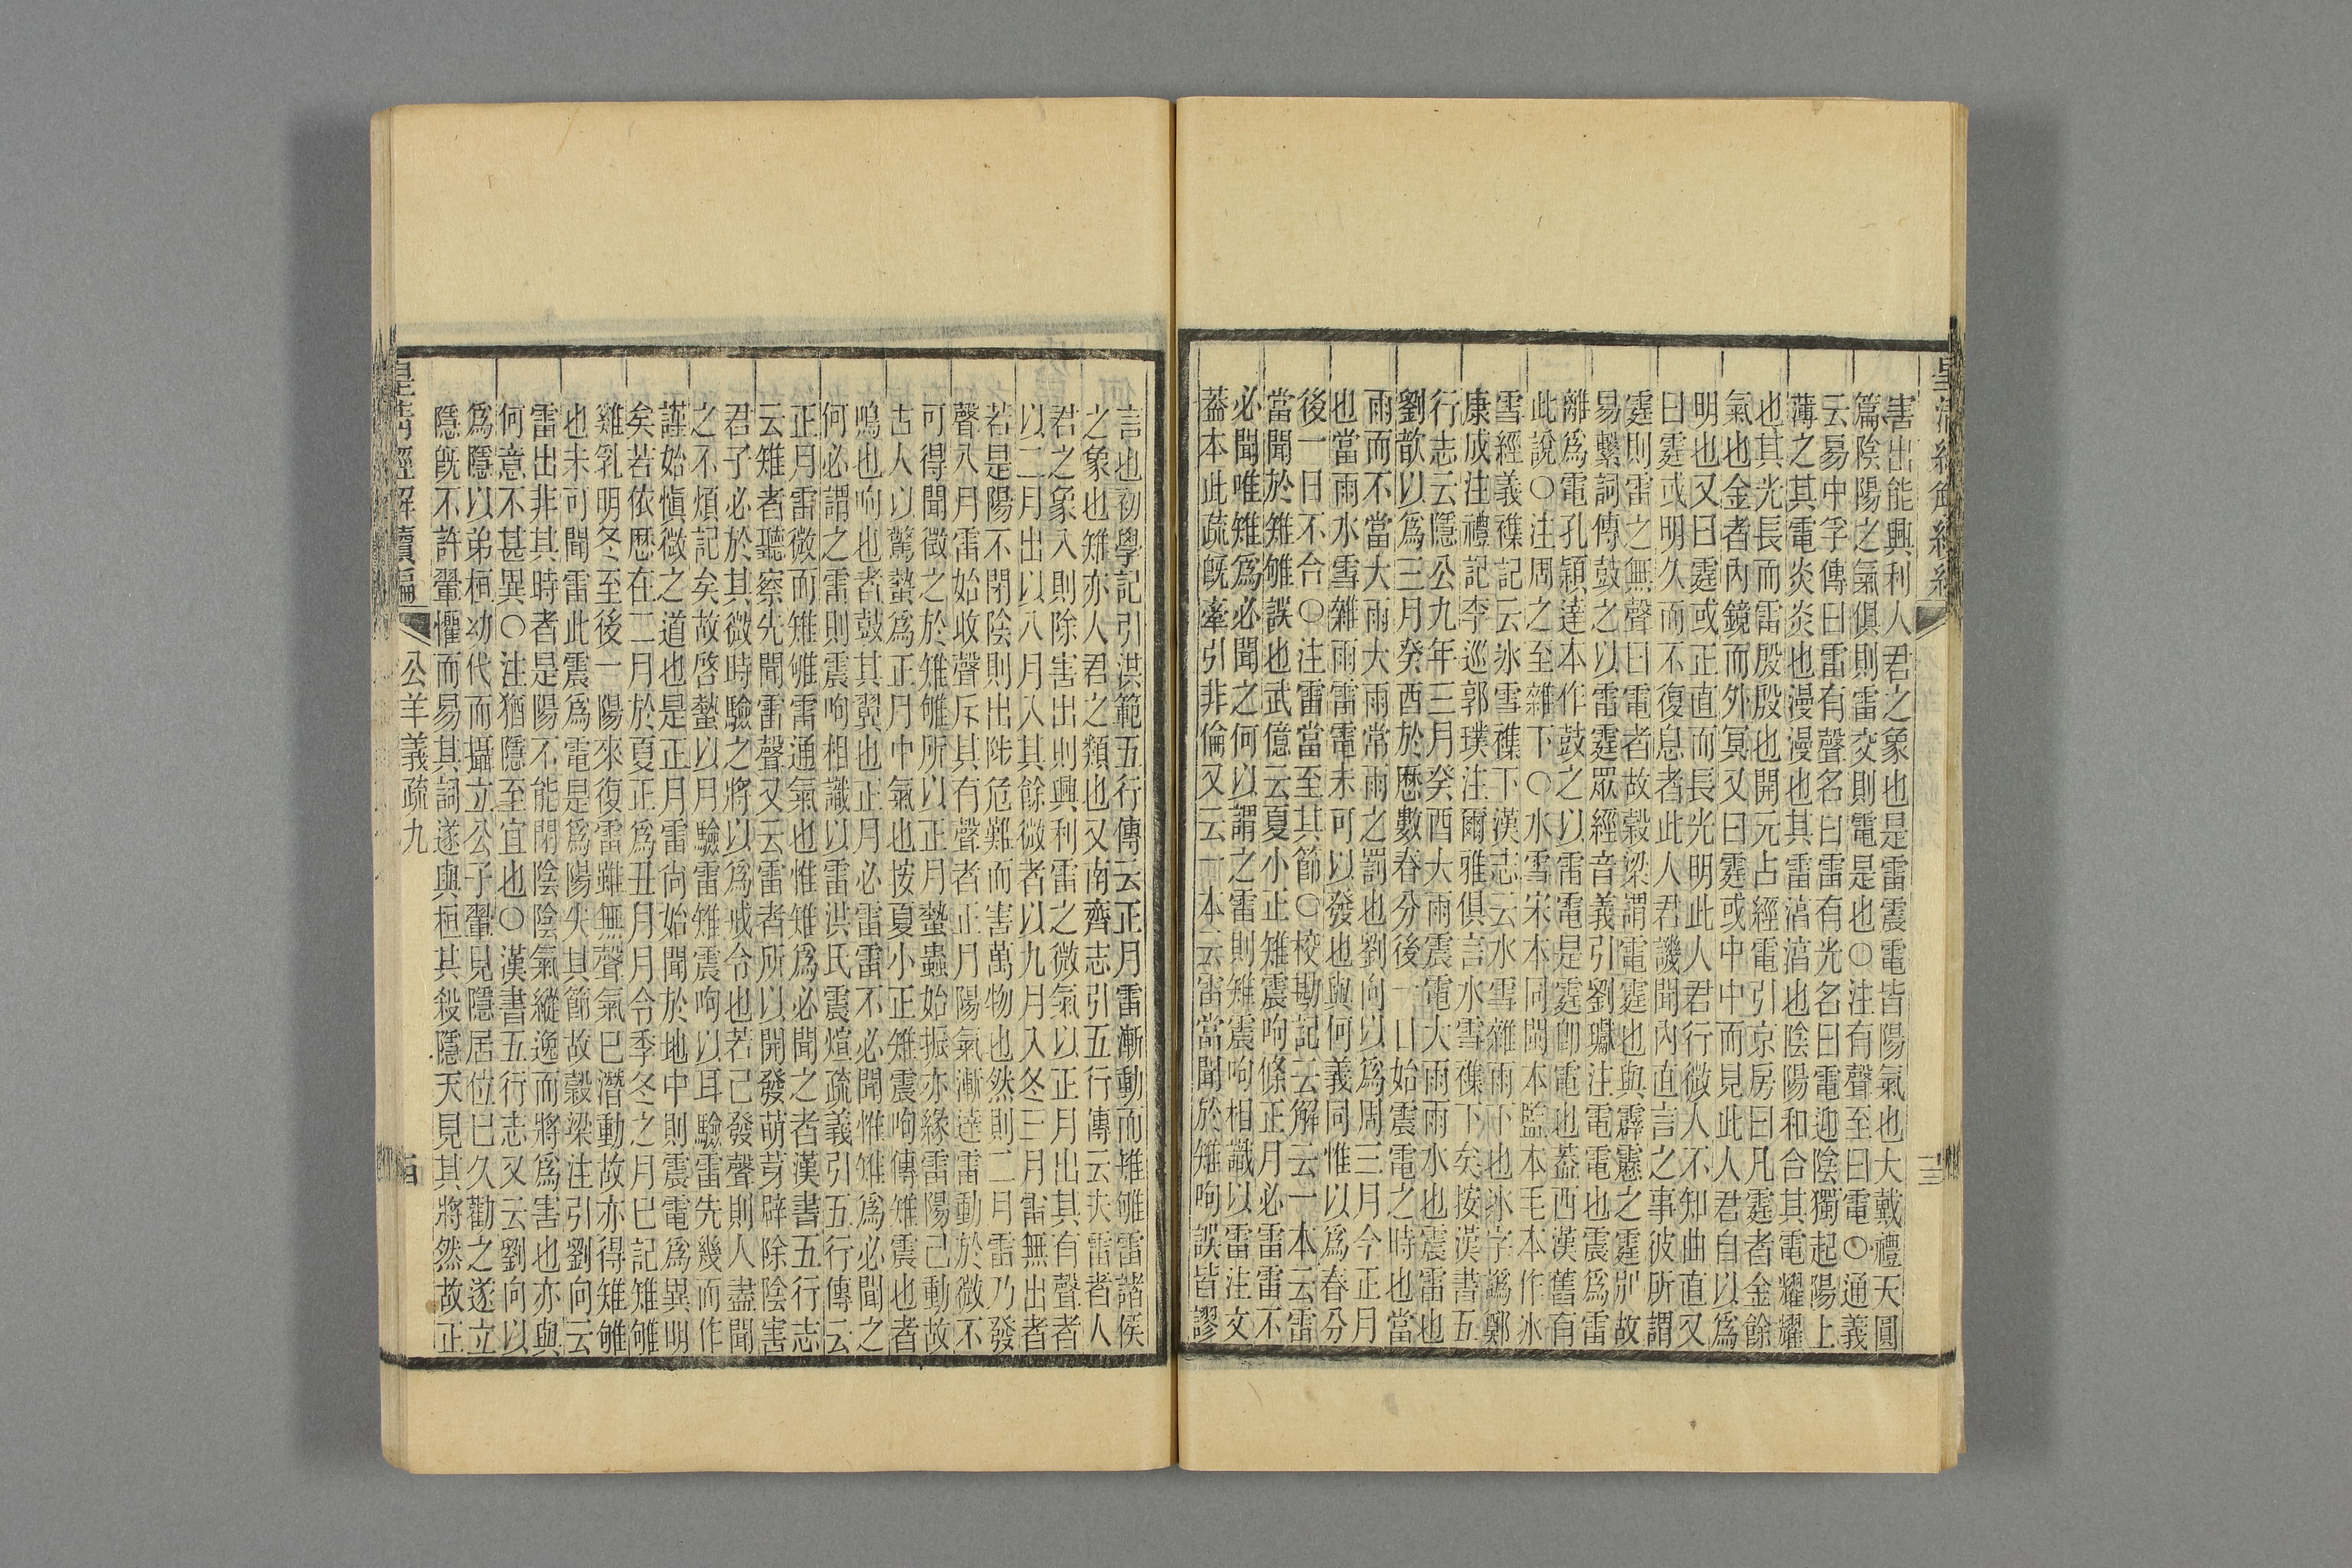 害出能興利人君之象也是雷震電皆陽氣也大戴禮天圓
篇陰陽之氣俱則雷交則電是也○注有聲至曰電○通義
云易中孚傳曰雷有聲名曰雷有光名曰電迎陰獨起陽上
薄之其電炎炎也漫漫也其雷滈滈也陰陽和合其電耀耀
也其光長而雷殷殷也開元占經電引京房曰凡霆者金餘
氣也金者內鏡而外冥又曰霆或中中而見此人君自以爲
明也又曰霆或正直而長光明此人君行微人不知曲直又
曰霆或明久而不復息者此人君譏聞內直言之事彼所謂
霆則雷之無聲曰電者故穀梁謂電霆也與霹靂之霆別故
易繫詞傳鼓之以雷霆眾經音義引劉瓛注電電也震爲雷
離爲電孔穎達本作鼓之以雷電是霆卽電也葢西漢舊有
此說○注周之至雜下○水雪宋本同閩本監本毛本作冰
雪經義襍記云冰雪襍下漢志云水雪雜雨下也冰字譌鄭
康成注禮記李巡郭璞注爾雅俱言水雪襍下矣按漢書五
行志云隱公九年三月癸酉大雨震電大雨雨水也震雷也
劉歆以爲三月癸酉於厯數春分後一日始震電之時也當
雨而不當大雨大雨常雨之罰也劉向以爲周三月今正月
也當雨水雪雜雨雷電未可以發也與何義同惟以爲春分
後一日不合○注雷當至其節○校勘記云解云一本云雷
當聞於雉雊誤也武億云夏小正雉震呴條正月必雷雷不
必聞唯雉爲必聞之何以謂之雷則雉震呴相識以雷注文
葢本此疏旣牽引非倫又云一本云雷當聞於雉呴誤皆謬
言也初學記引洪範五行傳云正月雷漸動而雉雊雷諸侯
之象也雉亦人君之類也又南齊志引五行傳云夫雷者人
君之象入則除害出則興利雷之微氣以正月出其有聲者
以二月出以八月入其餘微者以九月入冬三月雷無出者
若是陽不閉陰則出陟危難而害萬物也然則二月雷乃發
聲八月雷始收聲斥其有聲者正月陽氣漸達雷動於微不
可得聞徵之於雉雊所以正月蟄蟲始振亦緣雷陽己動故
古人以驚蟄爲正月中氣也按夏小正雉震呴傳雉震也者
鳴也呴也者鼓其翼也正月必雷雷不必聞惟雉爲必聞之
何必謂之雷則震呴相識以雷洪氏震煊疏義引五行傳云
正月雷微而雉雊雷通氣也惟雉爲必聞之者漢書五行志
云雉者聽察先聞雷聲又云雷者所以開發萌芽辟除陰害
君子必於其微時驗之將以爲戒令也若己發聲則人盡聞
之不煩記矣故啓蟄以月驗雷雉震呴以耳驗雷先幾而作
謹始愼微之道也是正月雷尙始聞於地中則震電爲異明
矣若依厯在二月於夏正爲丑月月令季冬之月巳記雉雊
雞乳明冬至後一陽來復雷雖無聲氣巳潛動故亦得雉雊
也未可聞雷此震爲電是爲陽失其節故穀梁注引劉向云
雷出非其時者是陽不能閉陰陰氣縱逸而將爲害也亦與
何意不甚異○注猶隱至宜也○漢書五行志又云劉向以
爲隱以弟桓幼代而攝立公子翬見隱居位巳久勸之遂立
隱旣不許翬懼而易其詞遂與桓其殺隱天見其將然故正
公羊義疏九